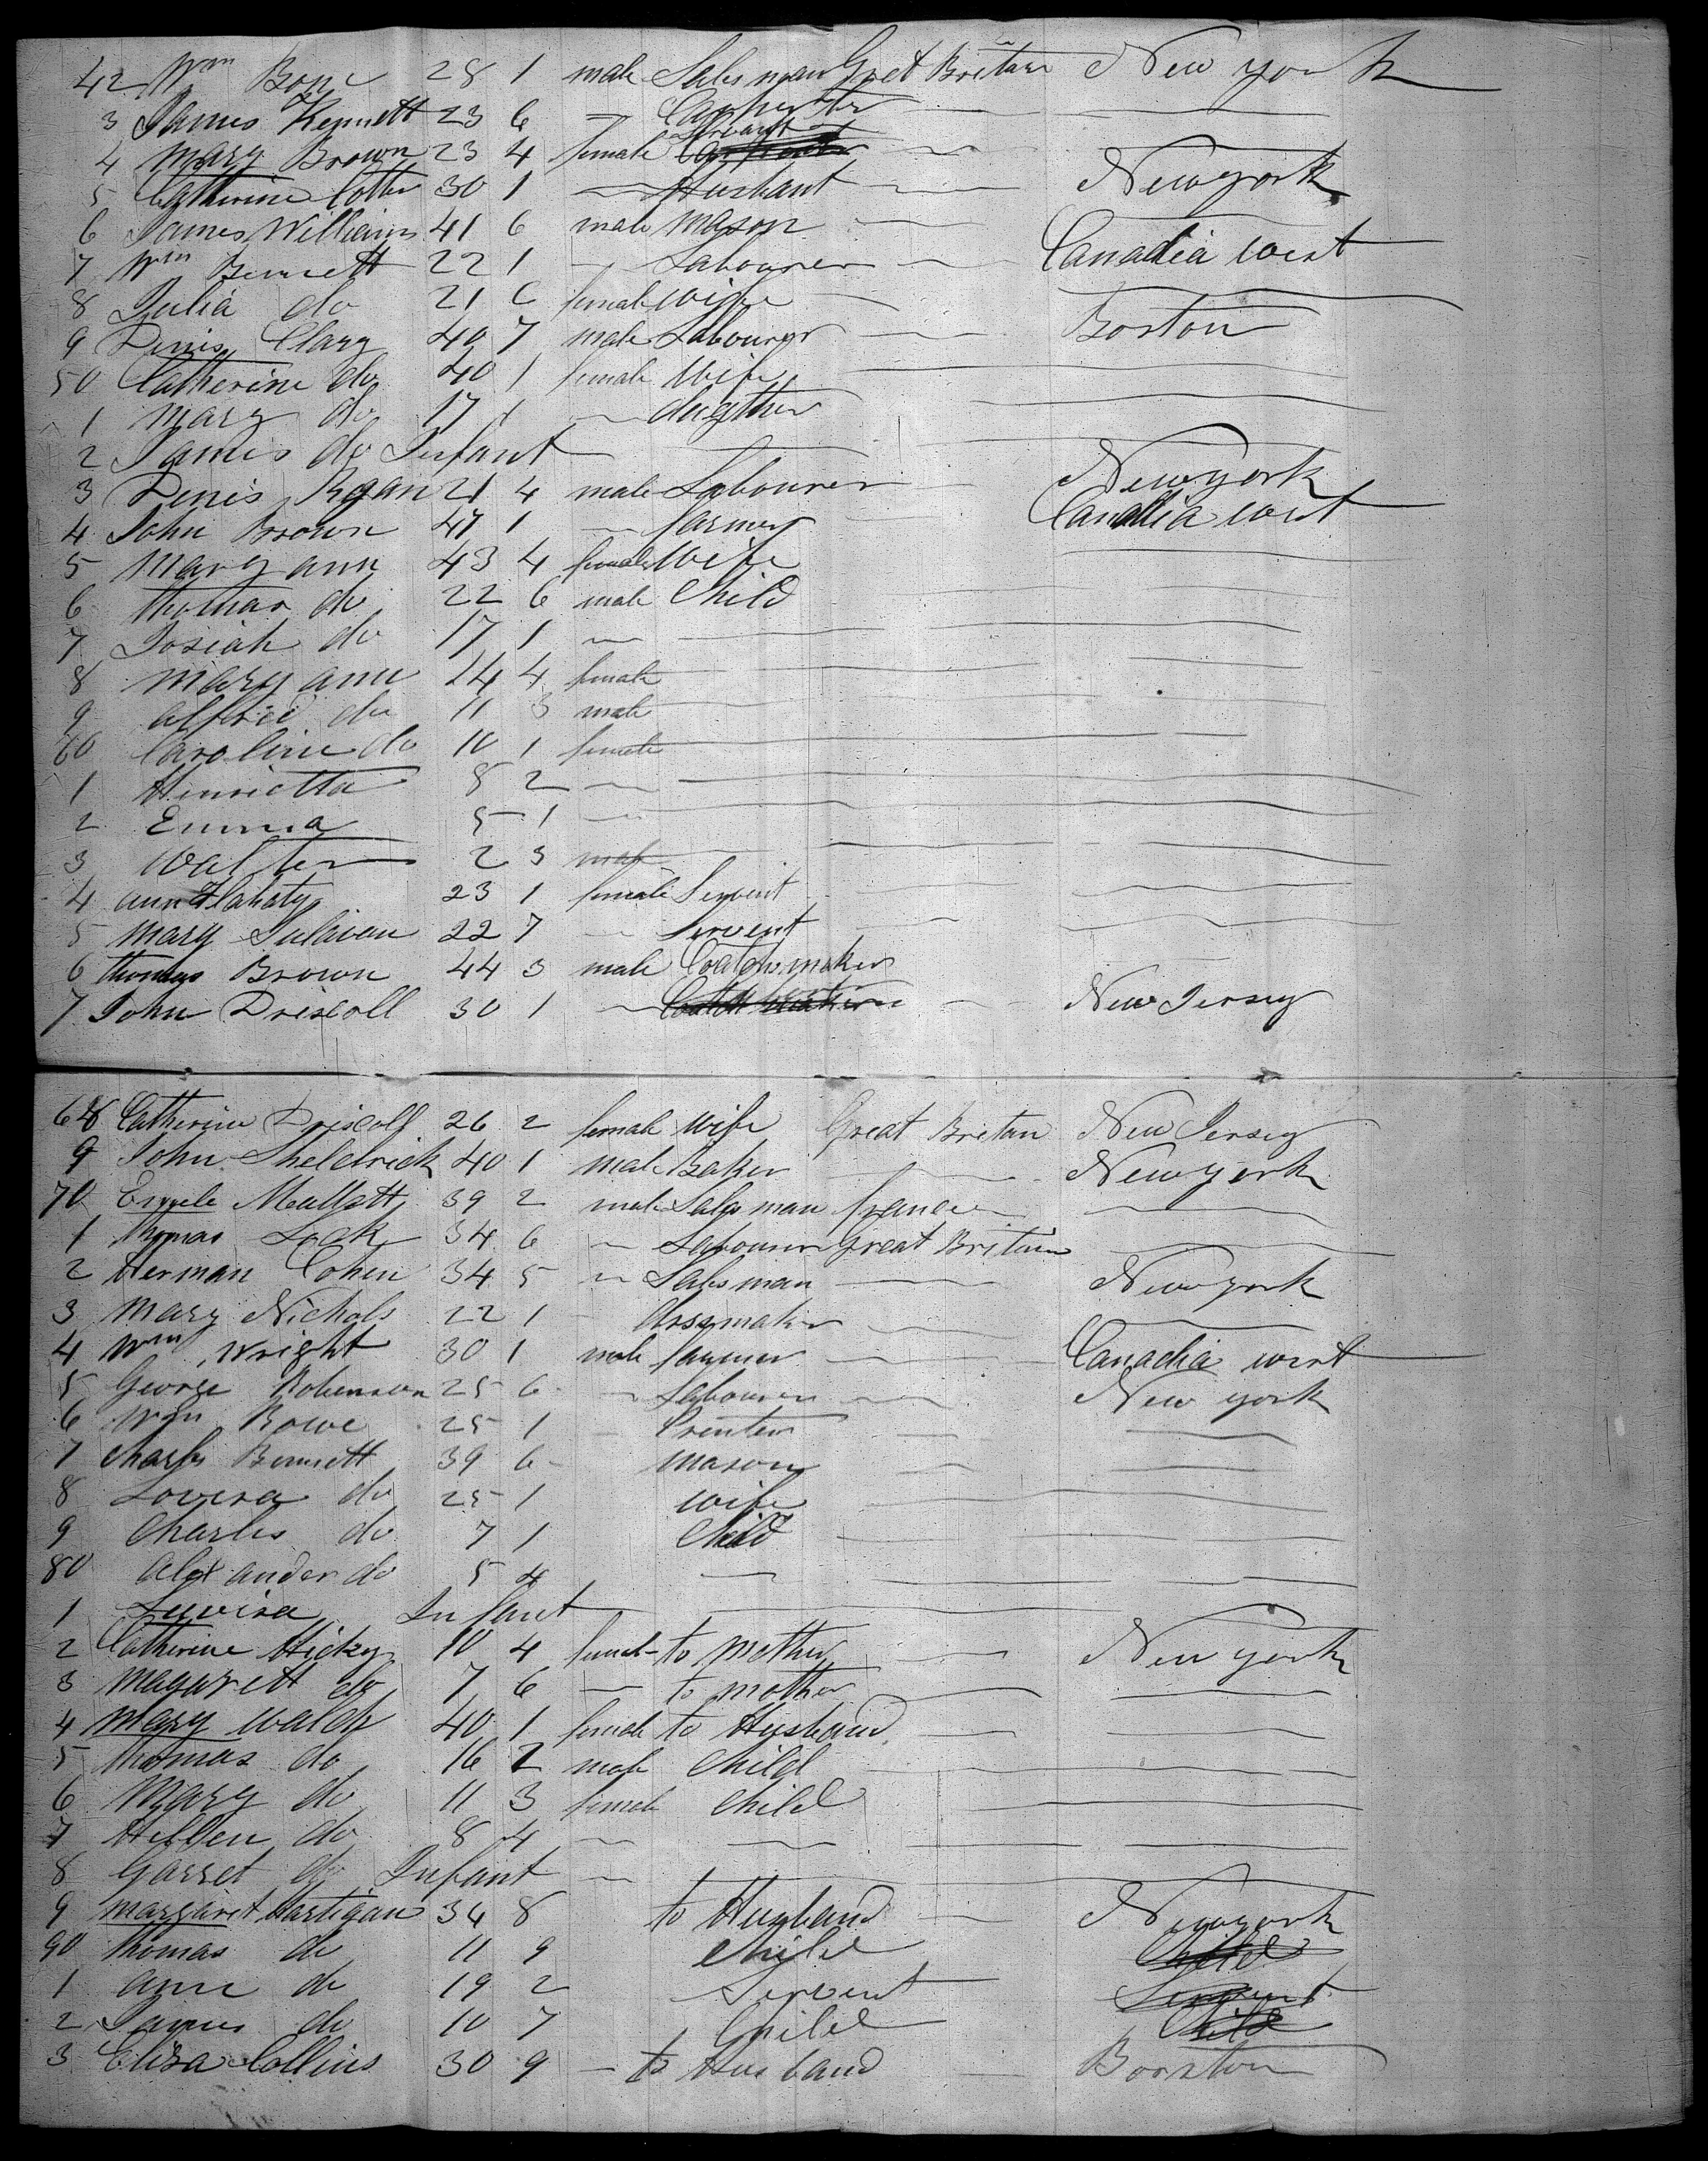 42 Wm Bone 28 1 male Salesman Gret Britain New york
3 James Kennett 23 6 — Carpenter —
4 Mary Brown 23 4 female Servant —
5 Catherine Cotter 30 1 — Husbant — New york
6 James Williams 41 6 male mason —
7 Wm Bennett 22 1 — Labourer — Canadia west
8 Julia do 21 6 female wife —
9 Denis Clary 40 7 male Labourer — Boston
50 Catherine do 40 1 female Wife —
1 mary do 17 1 — dagther —
2 James do Infant —
3 Denis Regan 21 4 male Labourer — New york
4 John Brown 47 1 — farmer Canadia west
5 mary ann 43 4 female Wife —
6 thomas do 22 6 male Child —
7 Josiah do 17 1 — —
8 mary ann 14 4 female —
9 alfred do 11 3 male —
60 Caroline do 10 1 female —
1 Henrietta 8 2 — —
2 Emma 5 1 — —
3 Walter 2 3 male —
4 ann Flahaty 23 1 female Servent —
5 mary Sulavan 22 7 — Servent —
6 thomas Brown 44 3 male Coatchmaker —
7 John Driscoll 30 1 — — New Jersey
68 Catherine Driscoll 26 2 female wife Great Britan New Jersey
9 John Sheldrick 40 1 male Baker — New york
70 Mallatt 39 2 male Salesman france —
1 thomas Lock 34 6 — Labourer Great Britain —
2 Herman Cohen 34 5 — Salesman — New york
3 Mary Nichols 22 1 — drssmaker —
4 Wm Wright 30 1 male farmer — Canadia west
5 George Robinson 25 6 — Labourer — New york
6 Wm Rowe 25 1 — Printer —
7 Charles Bennett 39 6 mason —
8 Lovisa do 25 1 wife —
9 Charles do 7 1 Child —
80 Alexander do 5 4 —
1 Luvisa Infant —
2 Catherine Hickey 10 4 female to mother — New york
3 Magarett do 7 6 — to mother —
4 mary walch 40 1 female to Husband —
5 thomas do 16 2 male Child —
6 Mary do 11 3 female child —
7 Hellen do 8 4 — —
8 Garret do Infant —
9 margaret Hartigan 34 8 to Husband — New york
90 thomas do 11 9 Child Child
1 ann do 19 2 Servent Servent
2 James do 10 7 Child Child
3 Eliza Collins 30 9 — to Husband — Boorston